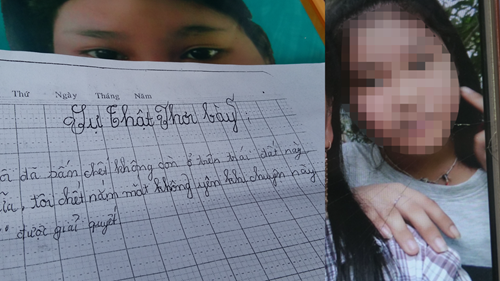 Thứ Ngày Tháng Năm
Sự Thật Phơi bày
đã bấm chết không còn ở trên trái đất này
nữa, tôi chết nắm mắt không yên khi chuyện này
được giải quyết